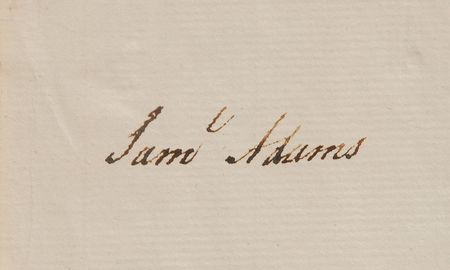 Saml Adams